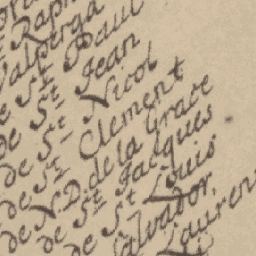 Raph
Valperga
de St. Paul
de St. Jean
de St. Nicol
de St. Clement
de N.D. de la Grace
de St. Jacques
de St. Louis
Salvador.
Laurens